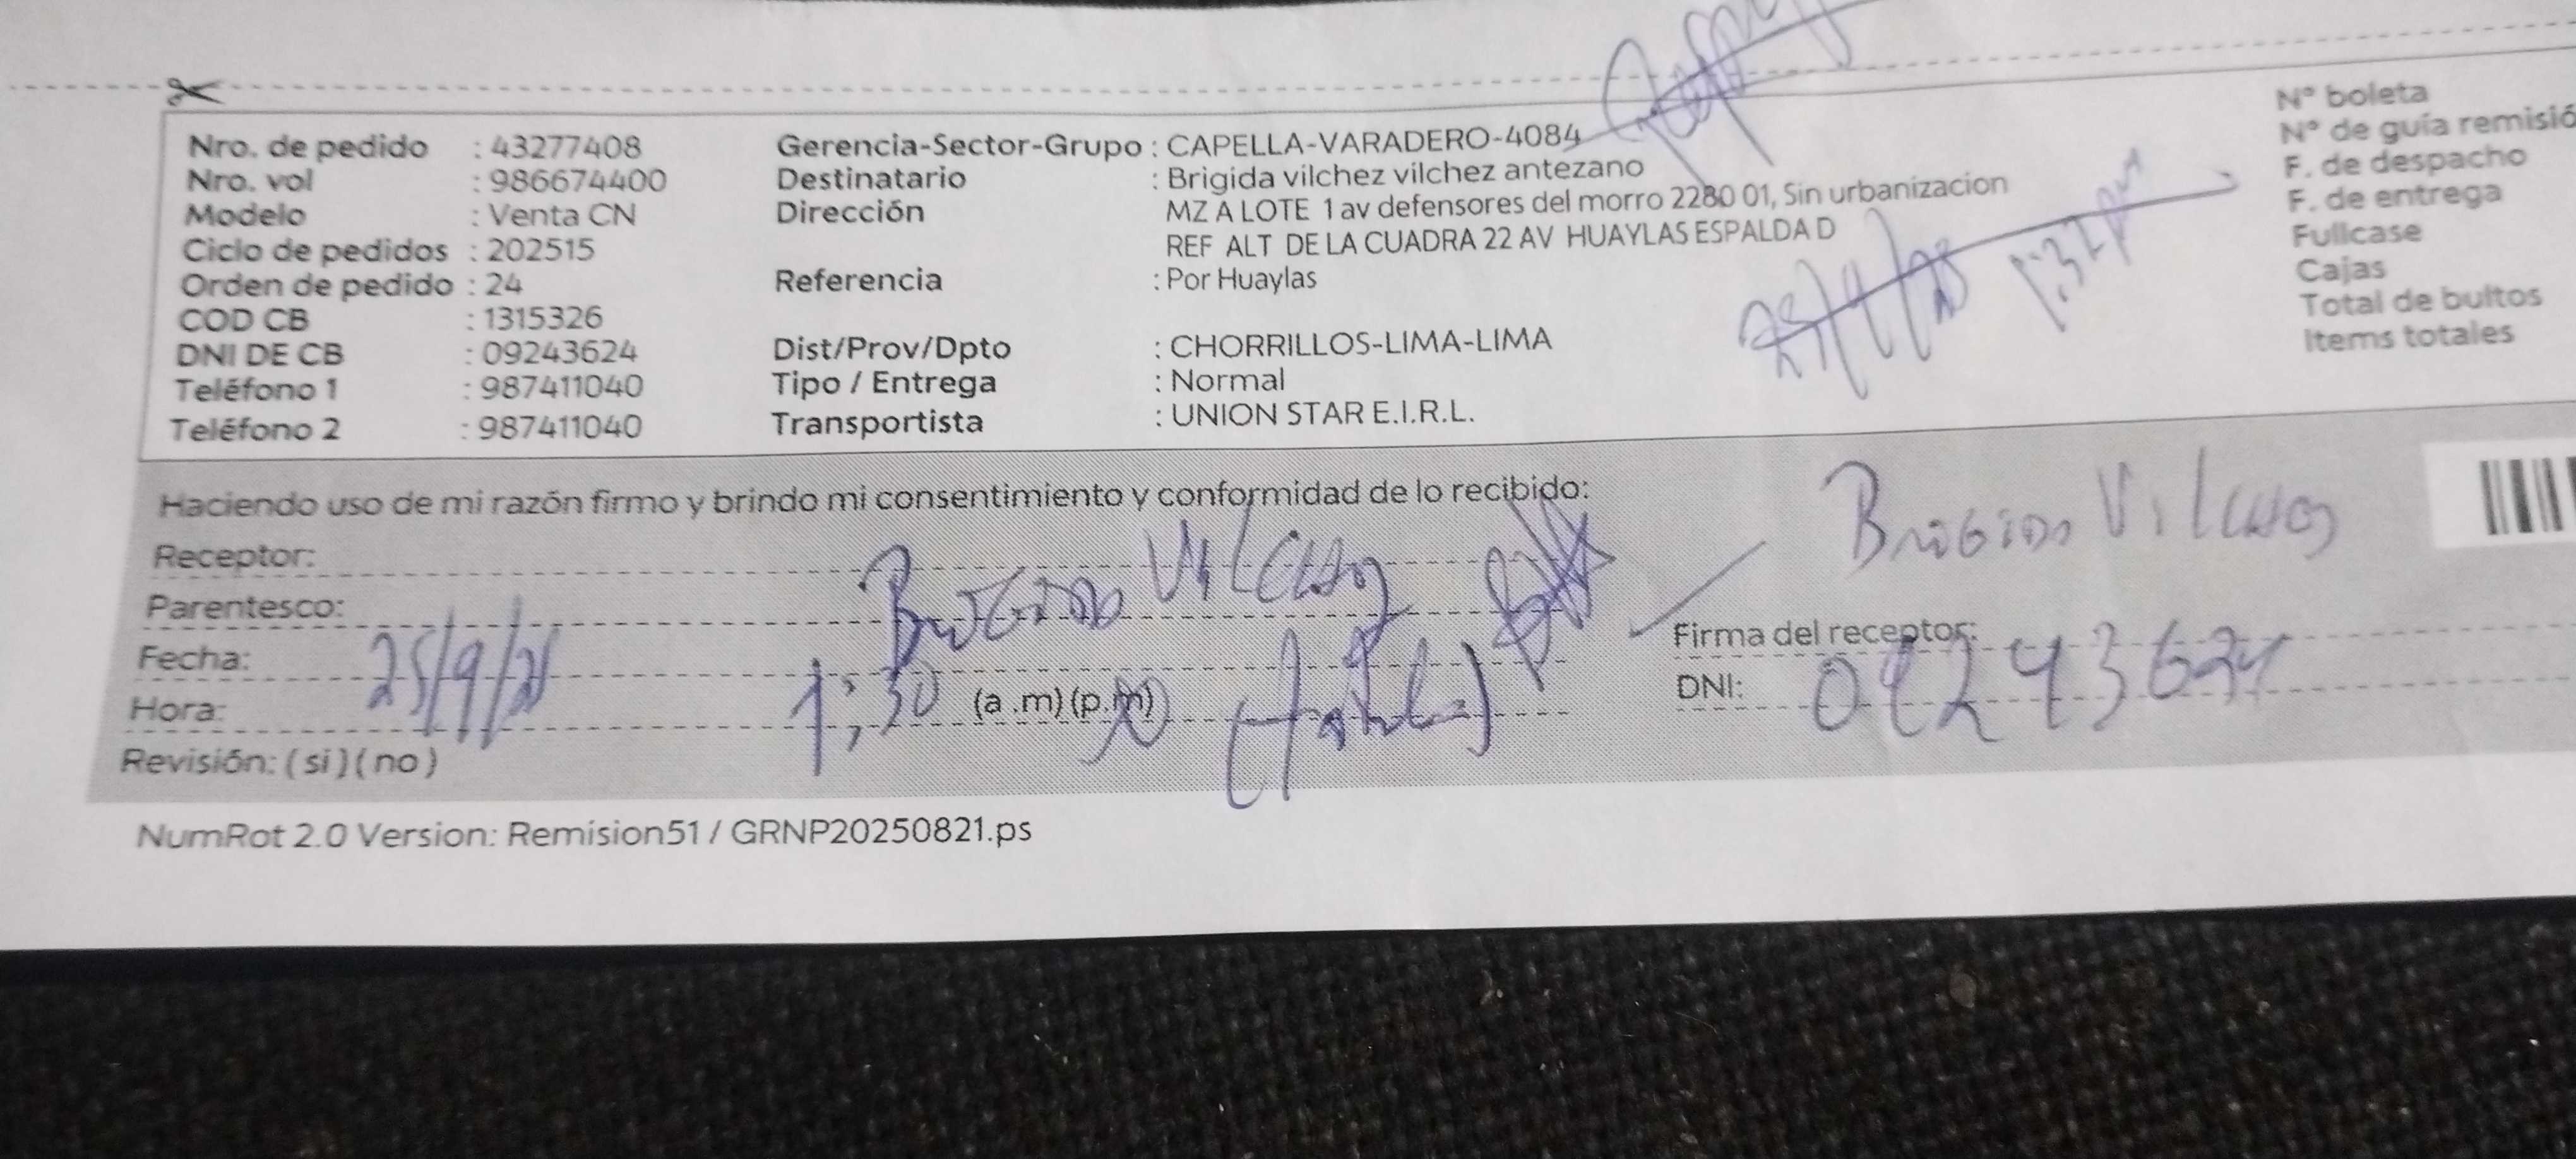 Nro. de pedido : 43277408
Nro. vol : 986674400
Modelo : Venta CN
Ciclo de pedidos : 202515
Orden de pedido : 24
COD CB : 1315326
DNI DE CB : 09243624
Teléfono 1 : 987411040
Teléfono 2 : 987411040
Gerencia-Sector-Grupo : CAPELLA-VARADERO-4084
Destinatario : Brigida vilchez vilchez antezano
Dirección MZ A LOTE 1 av defensores del morro 2280 01, Sin urbanizacion
REF ALT DE LA CUADRA 22 AV HUAYLAS ESPALDA D
Referencia : Por Huaylas
Dist/Prov/Dpto : CHORRILLOS-LIMA-LIMA
Tipo / Entrega : Normal
Transportista : UNION STAR E.I.R.L.
25/9/25
Nº boleta
Nº de guía remisió
F. de despacho
F. de entrega
Fullcase
Cajas
Total de bultos
Items totales
Haciendo uso de mi razón firmo y brindo mi consentimiento y conformidad de lo recibido:
Receptor: Brigida Vilchez
Parentesco:
Fecha: 25/9/25
Hora: 1:30 (a .m) (p.m)
Revisión: ( si ) ( no )
Brigida Vilchez
Firma del receptor:
DNI: 09243624
NumRot 2.0 Version: Remision51 / GRNP20250821.ps